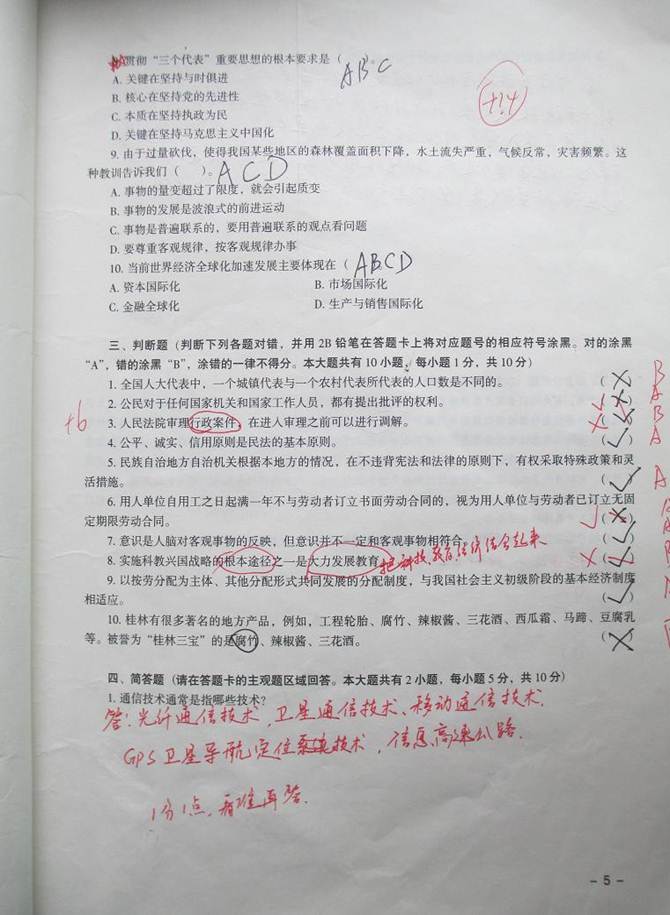 贯彻“三个代表”重要思想的根本要求是（ ABC ）。
A. 关键在坚持与时俱进
B. 核心在坚持党的先进性
+14
C. 本质在坚持执政为民
D. 关键在坚持马克思主义中国化
9. 由于过量砍伐，使得我国某些地区的森林覆盖面积下降，水土流失严重，气候反常，灾害频繁。这
种教训告诉我们（ ）。ACD
A. 事物的量变超过了限度，就会引起质变
B. 事物的发展是波浪式的前进运动
C. 事物是普遍联系的，要用普遍联系的观点看问题
D. 要尊重客观规律，按客观规律办事
10. 当前世界经济全球化加速发展主要体现在（ ABCD
A. 资本国际化 B. 市场国际化
C. 金融全球化 D. 生产与销售国际化
三、判断题（判断下列各题对错，并用 2B 铅笔在答题卡上将对应题号的相应符号涂黑。对的涂黑
“A”，错的涂黑“B”，涂错的一律不得分。本大题共有 10 小题，每小题 1 分，共 10 分）
1. 全国人大代表中，一个城镇代表与一个农村代表所代表的人口数是不同的。（ × ） B
2. 公民对于任何国家机关和国家工作人员，都有提出批评的权利。 A
+6 3. 人民法院审理行政案件，在进入审理之前可以进行调解。 B
4. 公平、诚实、信用原则是民法的基本原则。（ √ ） A
5. 民族自治地方自治机关根据本地方的情况，在不违背宪法和法律的原则下，有权采取特殊政策和灵
活措施。（ √ ） A
6. 用人单位自用工之日起满一年不与劳动者订立书面劳动合同的，视为用人单位与劳动者已订立无固
定期限劳动合同。（ × ）
7. 意识是人脑对客观事物的反映，但意识并不一定和客观事物相符合。（ √ ）
8. 实施科教兴国战略的根本途径之一是大力发展教育 把科技、教育、经济结合起来
9. 以按劳分配为主体、其他分配形式共同发展的分配制度，与我国社会主义初级阶段的基本经济制度
相适应。（ √ ）
10. 桂林有很多著名的地方产品，例如，工程轮胎、腐竹、辣椒酱、三花酒、西瓜霜、马蹄、豆腐乳
等。被誉为“桂林三宝”的是腐竹、辣椒酱、三花酒。（ × ）
四、简答题（请在答题卡的主观题区域回答。本大题共有 2 小题，每小题 5 分，共 10 分）
1. 通信技术通常是指哪些技术？
答：光纤通信技术，卫星通信技术、移动通信技术.
GPS卫星导航定位技术，信息高速公路.
1分1点，看准再答.
- 5 -